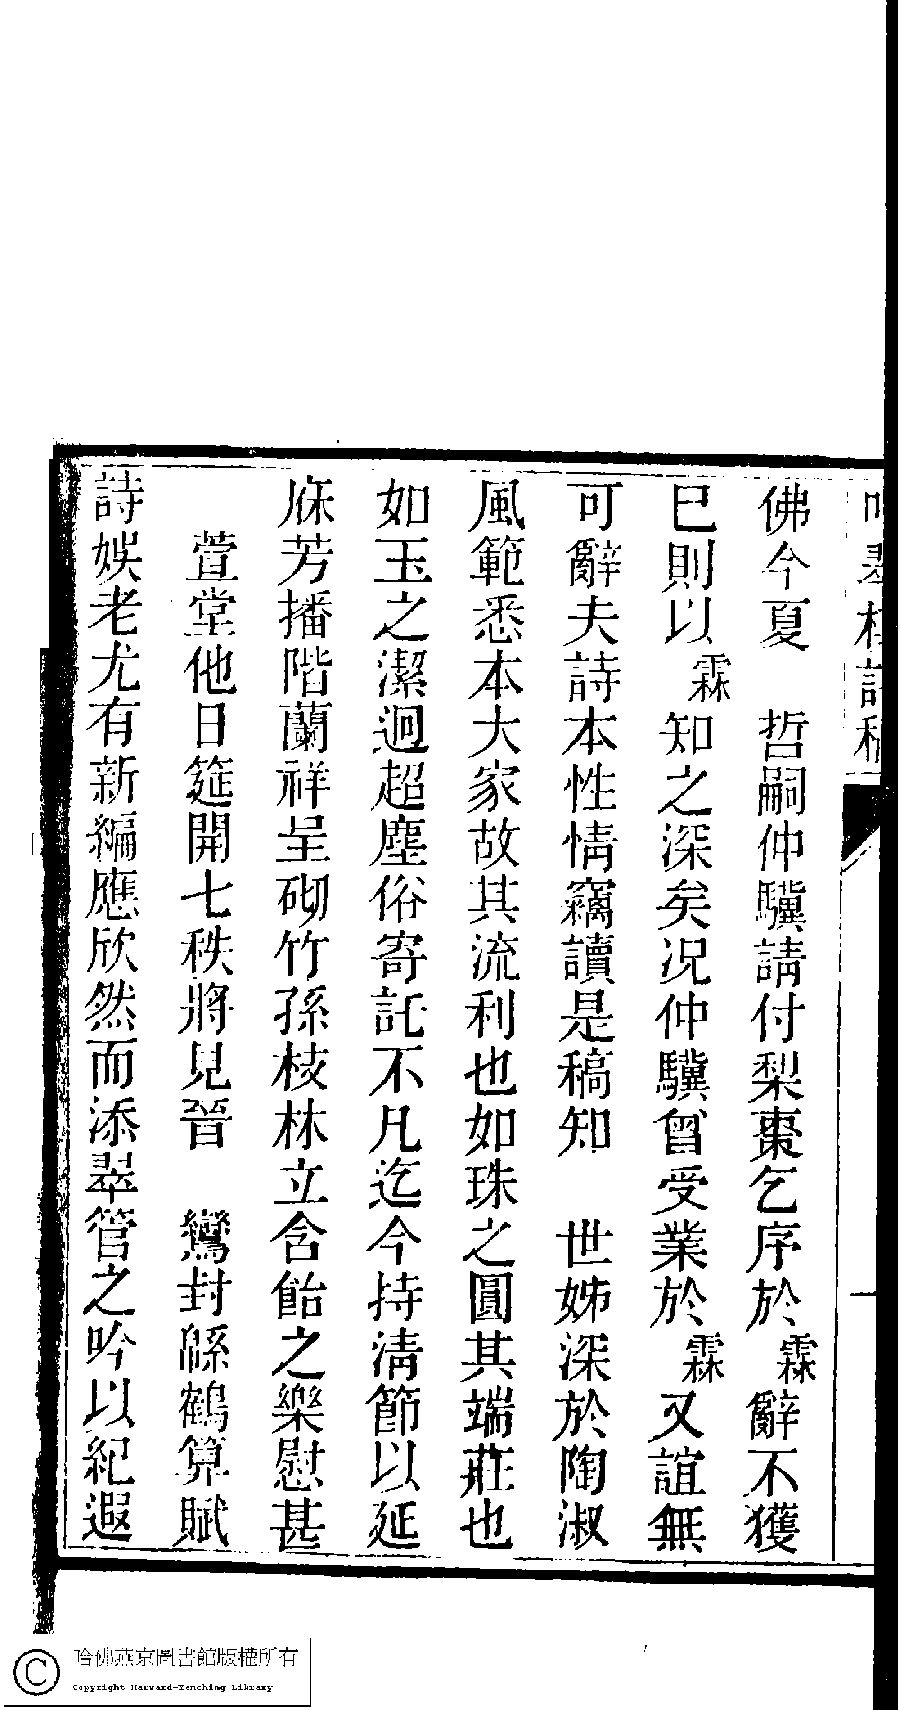 佛今夏　哲嗣仲驥請付梨棗乞序於霖辭不獲
已則以霖知之深矣况仲驥曾受業於霖又誼無
可辭夫詩本性情竊讀是稿知　世姊深於陶淑
風範悉本大家故其流利也如珠之圓其端莊也
如玉之潔迥超塵俗寄託不凡迄今持清節以延
庥芳播階蘭祥呈砌竹孫枝林立含飴之樂慰甚
萱堂他日筵開七秩將見晉　鸞封緜鶴算賦
詩娛老尤有新編應欣然而添翠管之吟以紀遐
哈佛燕京圖書館版權所有
Copyright Harvard-Yenching Library